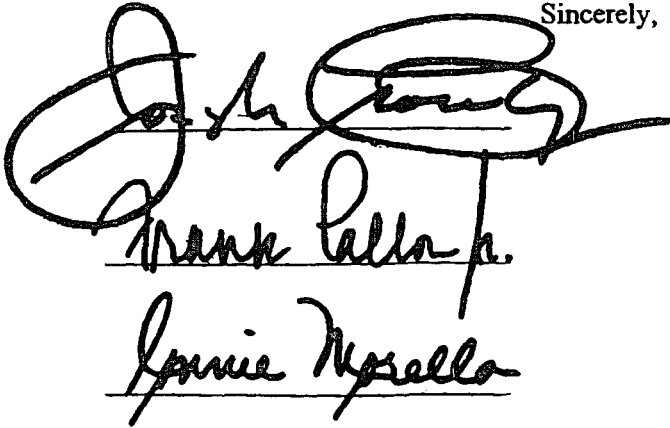 Sincerely,
Joseph Crowley
Frank Pallone Jr.
Connie Morella